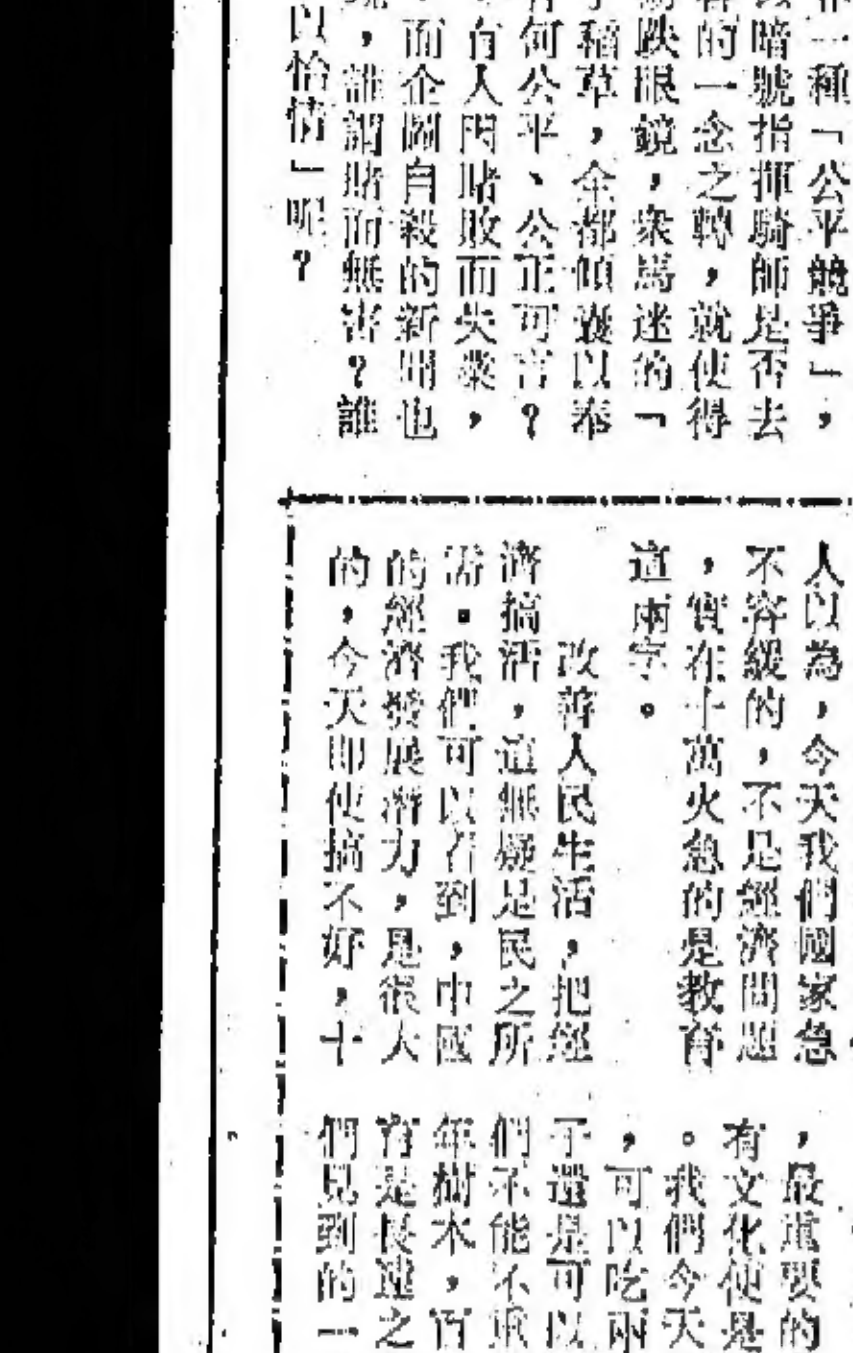 非一種「公平競爭」，
以暗號指揮騎師是否去
的一念之轉，就使得
跌眼鏡，衆馬迷的「
稻草，全都傾囊以奉
有何公平、公正可言？
有人因賭敗而失業，
而企圖自殺的新聞也
，誰謂賭而無害？誰
以怡情」呢？
人以為，今天我們國家急
不容緩的，不是經濟問題
，實在十萬火急的是教育
這兩字。
改善人民生活，把經
濟搞活，這無疑是民之所
活。我們可以看到，中國
的經濟發展潛力，是很大
的，今天即使搞不好，十
，最重要的
有文化便是
。我們今天
，可以吃兩
子還是可以
們不能不重
年樹木，百
育是長遠之
們見到的一